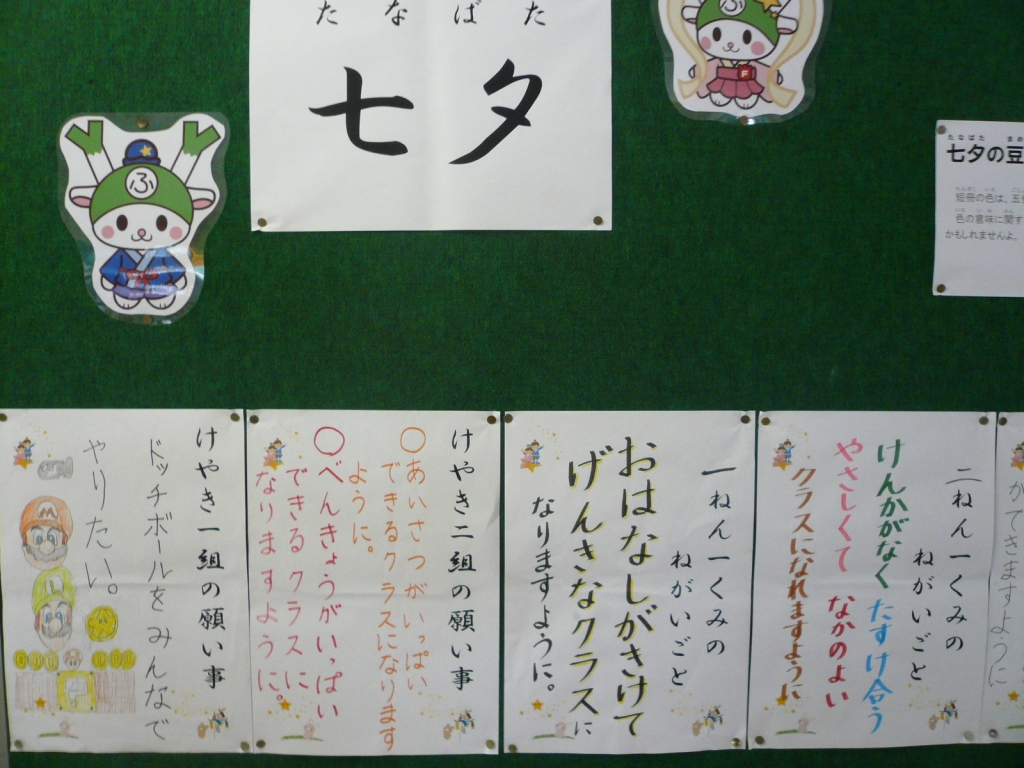 たなばた
七夕
ふ
ふ
F
たなばた まめ
七夕の豆
短冊の色は、五
色の意味に関す
かもしれませんよ。
できますように
二ねん一くみの
ねがいごと
けんかがなく たすけ合う
やさしくて なかのよい
クラスになれますように
一ねん一くみの
ねがいごと
おはなしがきけて
げんきなクラスに
なりますように。
けやき二組の願い事
○あいさつがいっぱい
できるクラスになります
ように。
○べんきょうがいっぱい
できるクラスに
なりますように。
けやき一組の願い事
ドッチボールをみんなで
やりたい。
M